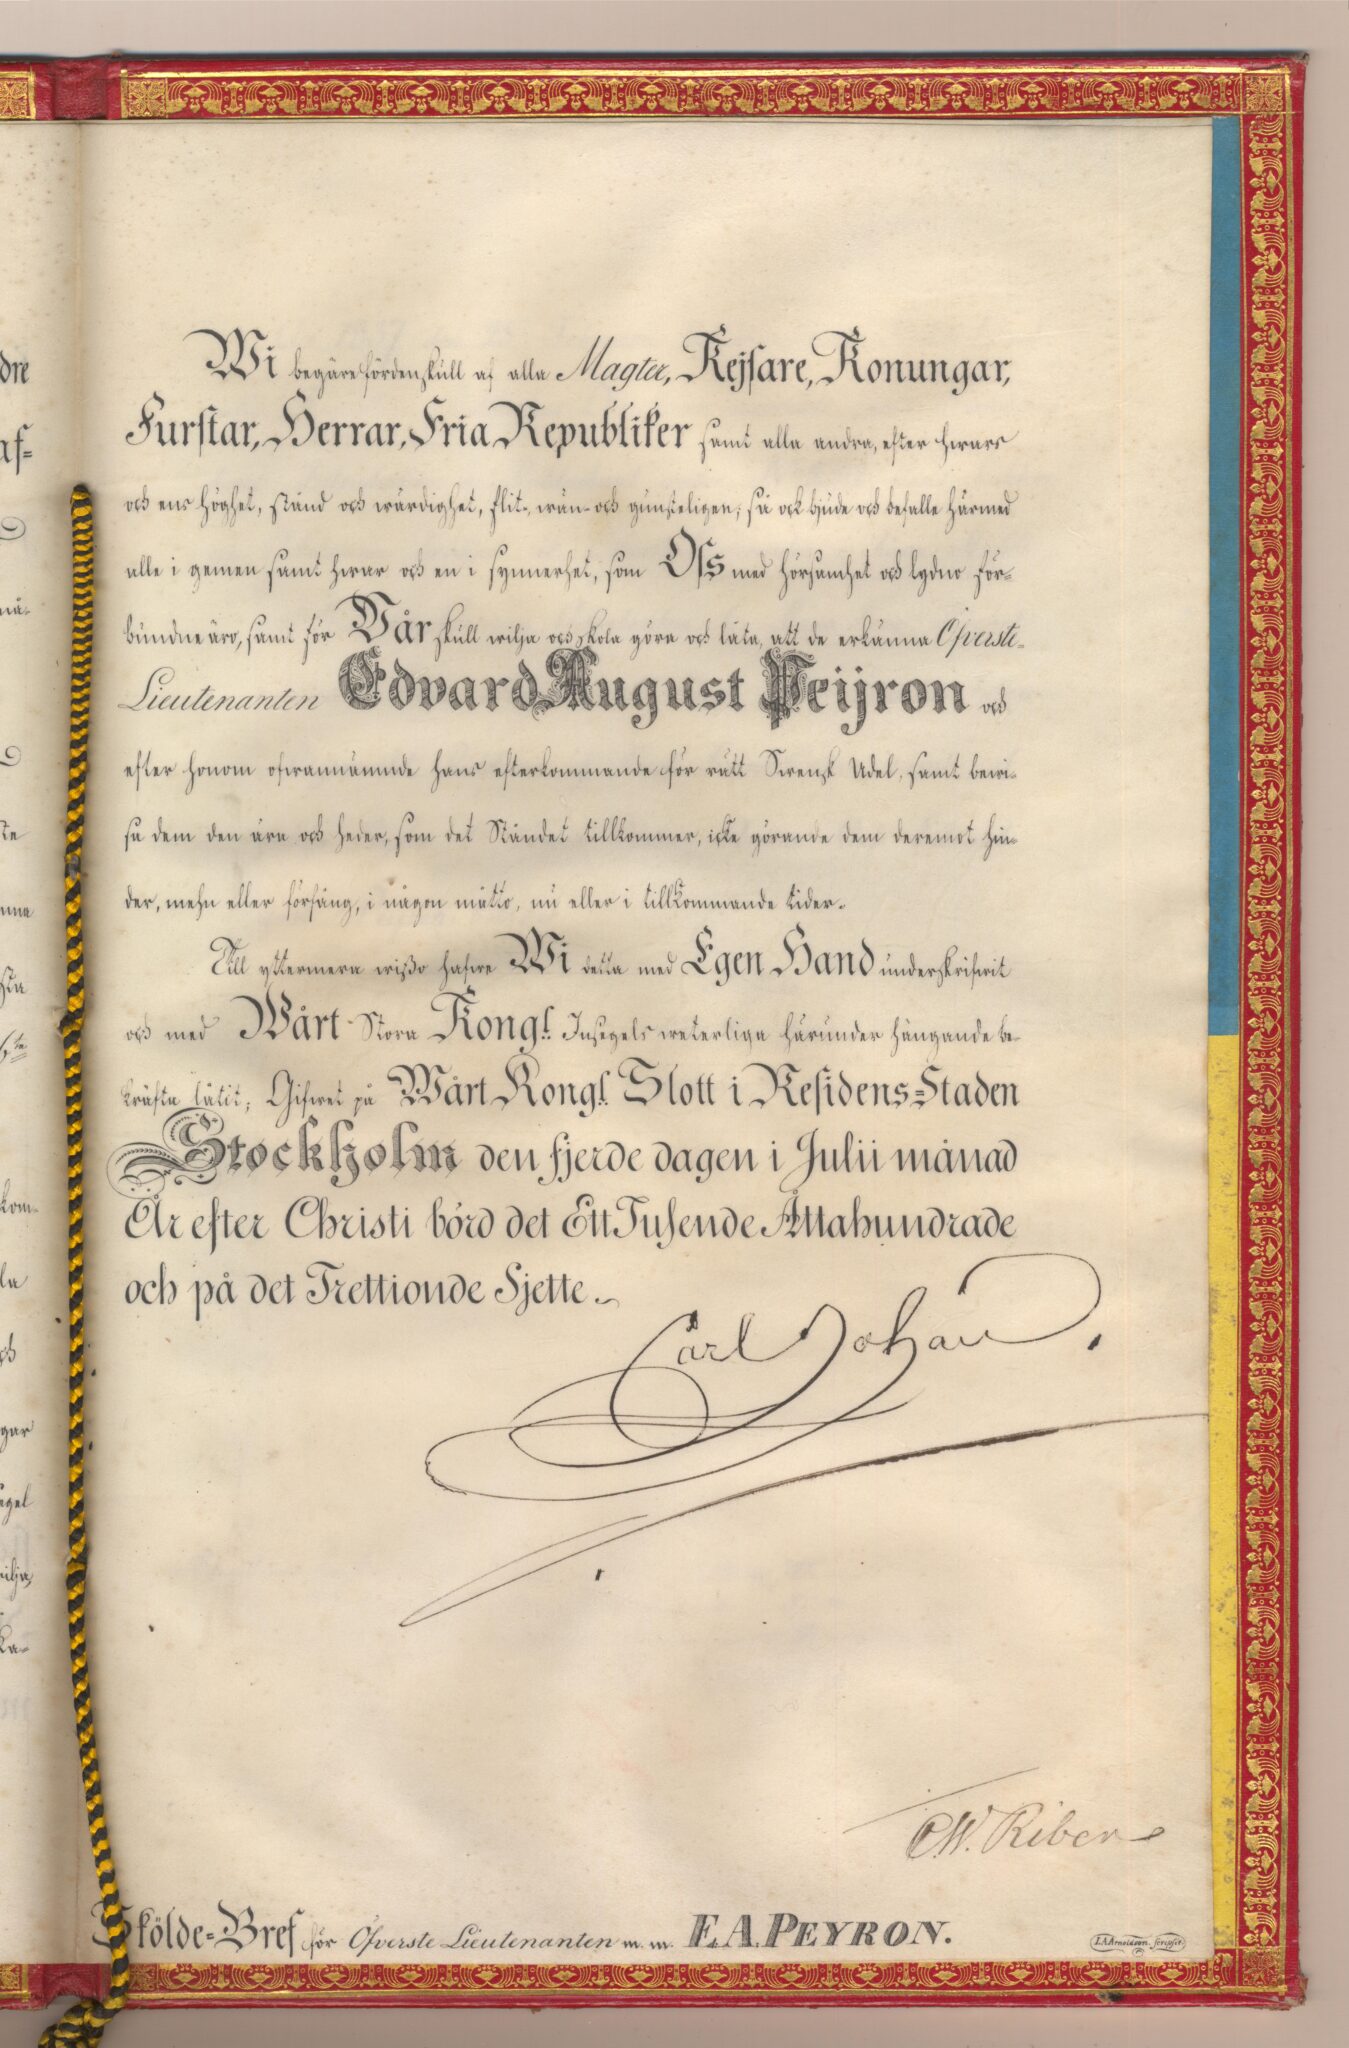 Wi begäre fördenskull af alla Magter, Kejsare, Konungar,
Furstar, Herrar, Fria Republiker samt alla andra, efter hwars
och ens höghet, stånd och wärdighet, flit-, wän- och gunsteligen; så ock bjude och befalle härmed
alle i gemen samt hwar och en i synnerhet, som Oss med hörsamhet och lydno för-
bundne äro, samt för Vår skull wilja och skola göra och låta, att de erkänna Öfverste-
Lieutenanten Edvard August Peijron och
efter honom ofwannämnde hans efterkommande för rätt Swensk Adel, samt bewi-
sa dem den ära och heder, som det Ståndet tillkommer, icke görande dem deremot hin-
der, mehn eller förfång, i någon måtto, nu eller i tillkommande tider.
Till yttermera wißo hafwe Wi detta med Egen Hand underskrifwit
och med Wårt Stora Kongl. Insegels weterliga härunder hängande be-
kräfta låtit; Gifwet på Wårt Kongl. Slott i Residens-Staden
Stockholm den fjerde dagen i Julii månad
År efter Christi börd det Ett Tusende Åttahundrade
och på det Trettionde Sjette.
Carl Johan
C.W. Riben
Skölde-Bref för Öfverste Lieutenanten m. m. E. A. PEYRON.
I.A. Arnoldson. scripsit.
dre
af-
nå-
ste
nna
sta
6te
kom-
la
ch
gar
egel
wilja
ka-